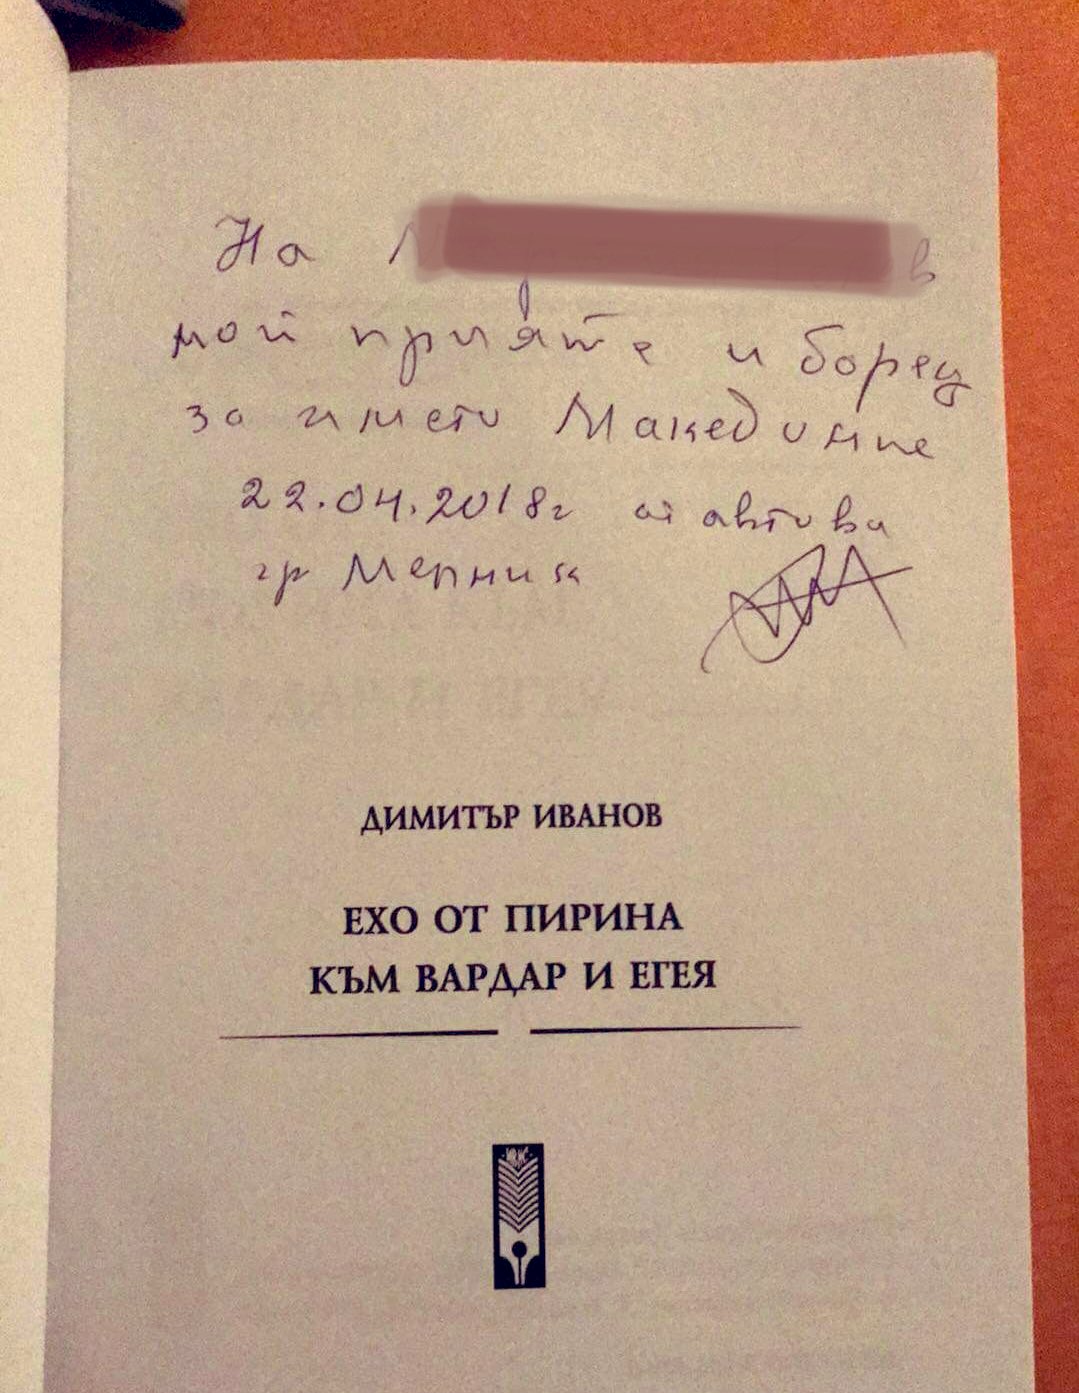 На
мой прияте и борец
за името Македоние
22.04.2018г от автова
гр Мелник
ДИМИТЪР ИВАНОВ
ЕХО ОТ ПИРИНА
КЪМ ВАРДАР И ЕГЕЯ